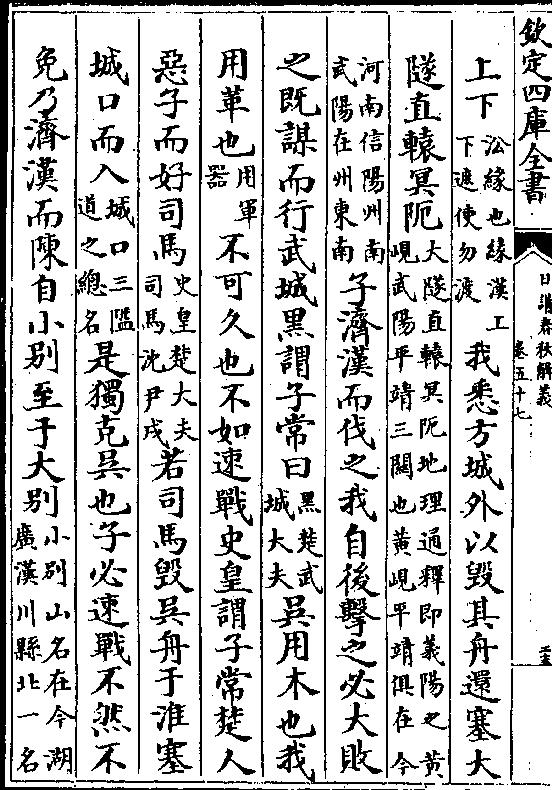 欽定四庫全書
日講春秋解義
卷五十七
上下沿緣也緣漢上下遮使勿渡我悉方城外以毁其舟還塞大
隧直轅冥阨大隧直轅冥阨地理通釋即義陽之黄峴武陽平靖三關也黄峴平靖俱在今
河南信陽州南武陽在州東南子濟漢而伐之我自後擊之必大敗
之既謀而行武城黑謂子常曰黑楚武城大夫吳用木也我
用革也用軍器不可久也不如速戰史皇謂子常楚人
惡子而好司馬史皇楚大夫司馬沈尹戌若司馬毁吳舟于淮塞
城口而入城口三隘道之總名是獨克吳也子必速戰不然不
免乃濟漢而陳自小别至于大别小别山名在今湖廣漢川縣北一名